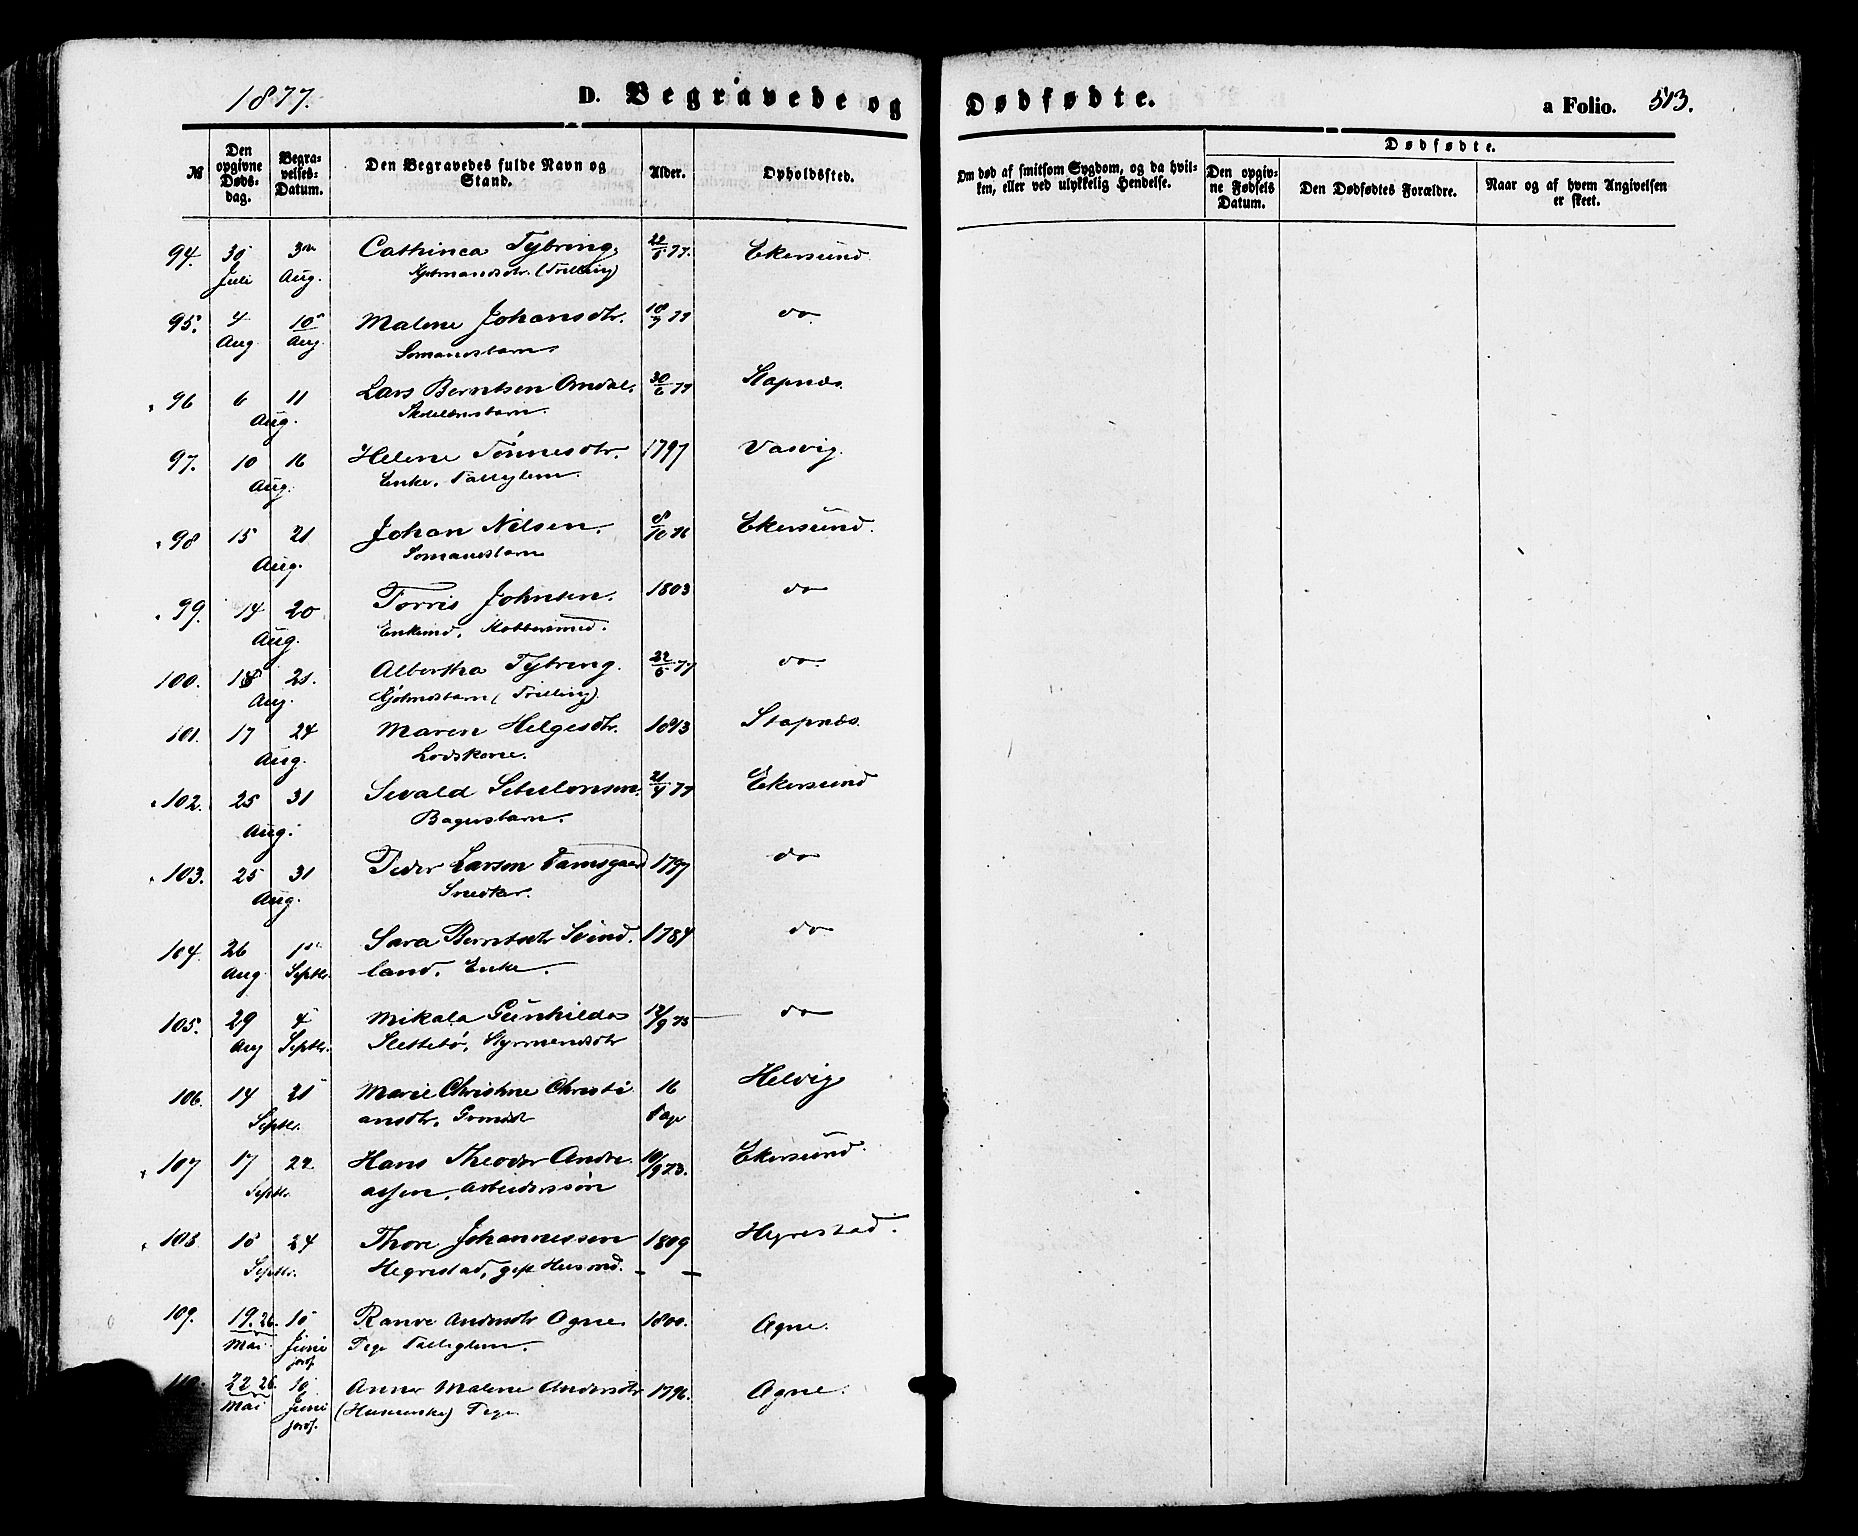 1877.
D. Begravede og
Dødfødte.
a Folio. 513.
№
Den opgivne Døds-dag.
Begra-velses-Datum.
Den Begravedes fulde Navn og Stand.
Alder.
Opholdsfted.
Om død af smitsom Sygdom, og da hvil-ken, eller ved ulykkelig Hendelse.
Dødfødte.
Den opgiv-ne Fødsels Datum.
Den Dødfødtes Forældre.
Naar og af hvem Angivelsen er skeet.
94. 30 3 Cathinca Tybring. 22/5 77. Ekersund
Juli Aug. (Trilling)
95. 4 10 Malene Johansdtr. do
Aug Aug Sømandsbarn.
96 6 11 Lars Berntsen 30/6 77 Stapnæs
Aug.
97. 10 16 Helene Tønnesdtr. 1797 Vasvig.
Aug. Enke.
98 15 21 Johan Nilsen. 8/10 76 Ekersund.
Aug. Sømandsbarn
99. 14 20 Torris Johnsen. 1803 do
Aug. Enkemd, Kobbersmed.
100. 18 21. Albertha Tybring. 22/5 77 do.
Aug. (Trilling)
101. 17 24 Maren Helgesdtr. 1843 Stapnæs
Aug. Lodskone.
102. 25 31 Sivald Sebulonsen. 21/4 77 Ekersund
Aug. Bagersbarn.
103. 25 31 Peder Larsen Damsgaard 1797 do
Aug. Snedker.
104. 26 1 Sara Berntsdtr Svind- 1784 do
Aug Septbr. land. Enke.
105. 29 4 Mikala Gunhilda 12/9 73 do
Aug Septbr. Slettebø, Styrmandsdtr
106. 14 21 Marie Christine Christi 16 Helvig
Septbr. ansdtr. Dage
107 17 22. Hans Theodor Andre 10/9 73. Ekersund.
Septbr. assen, Arbeiderssøn
108. 18 24 Thore Johannessen 1809 Hegrestad.
Septbr. Hegrestad, gift Husmd.
109. 19. 26. 10 Ranve Andersdtr Ogne 1800. Ogne.
Mai Juni Pige
jordf.
110. 22. 26. 10 Anne Malene Andersdtr 1796. Ogne.
Mai Juni Pige.
jordf.